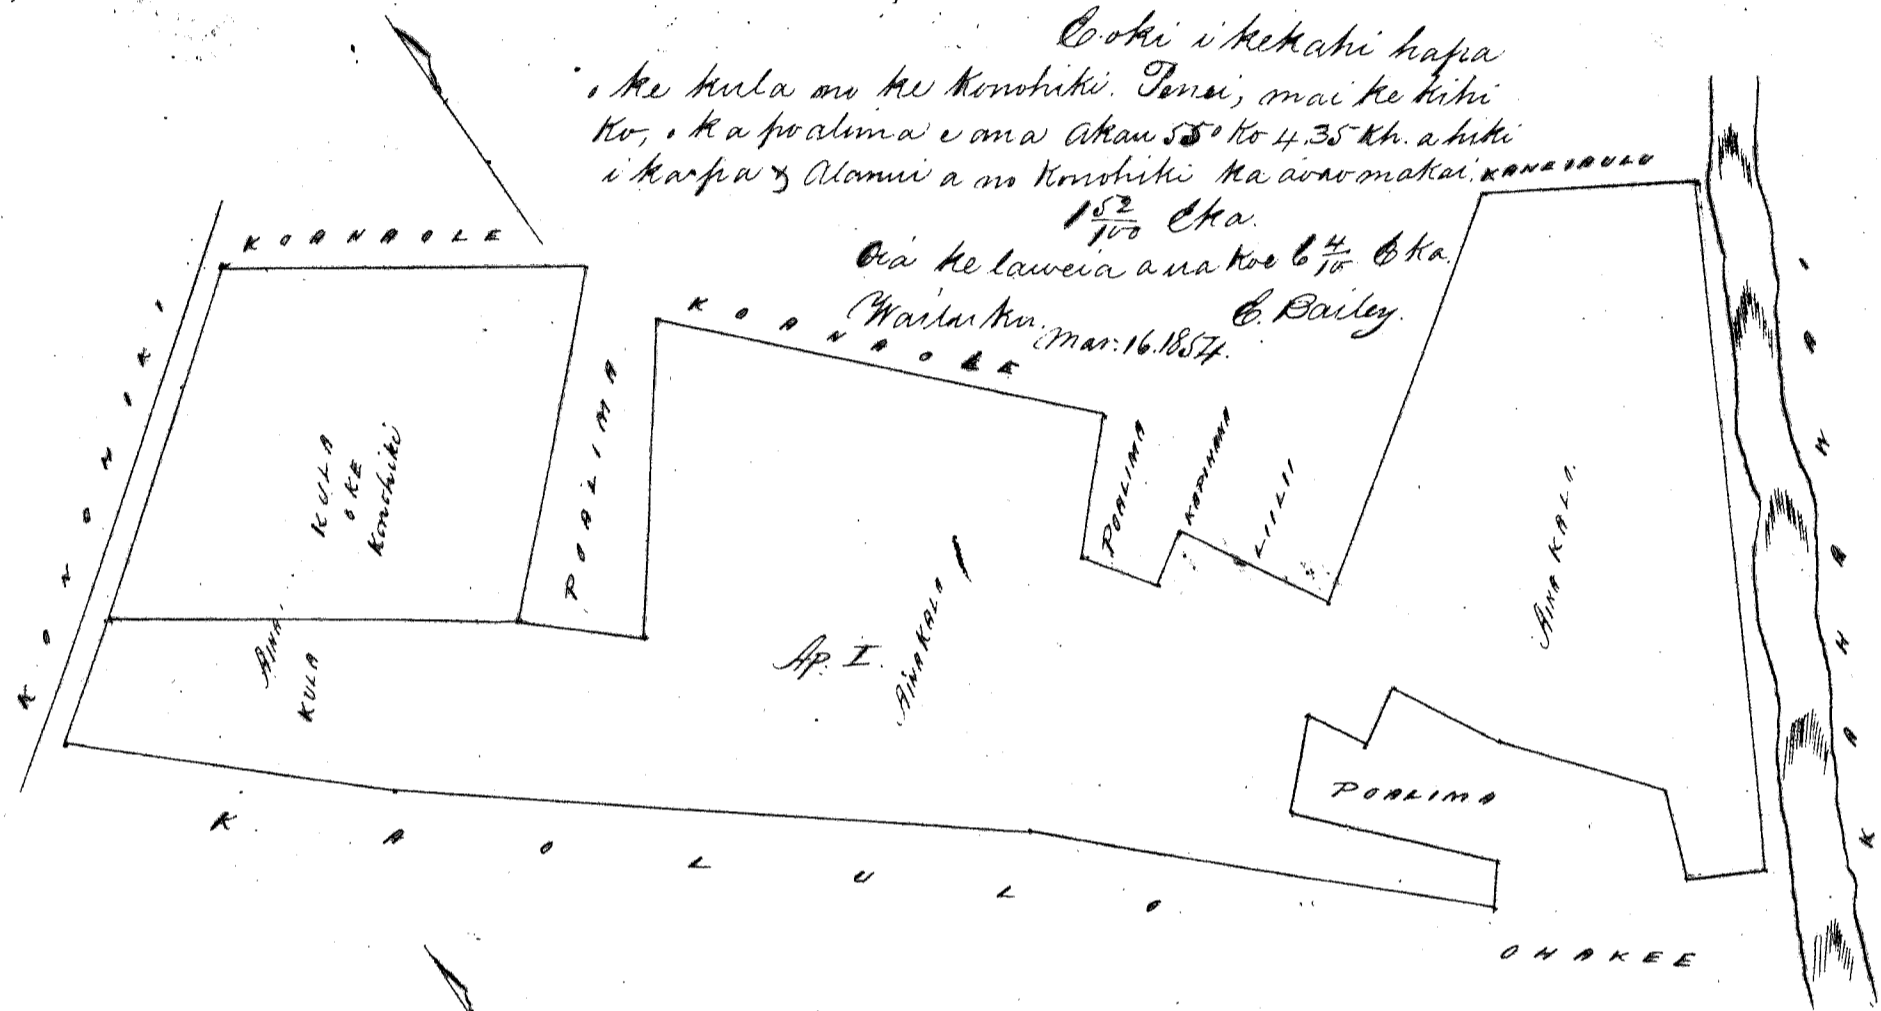 E oki i kekahi hapa
o ke kula no ke Konohiki. Penei, mai ke kihi
Ko, o ka poalima e ana Akau 55° Ko 4.35 Kh. a hiki
i ka pa Alanui a no Konohiki ka aoao makai.
1 52/100 Eka.
Oia ke laweia a ua koe 6 4/10 Eka.
Wailuku. E. Bailey.
Mar. 16. 1854.
KANEIAULU
KOANAOLE
KONOHIKI
KULA
O KE
Konohiki
POALIMA
KOANAOLE
POALIMA
KAPUNANA
LIILII
AINA KALO
KAAHAWAI
AINA
KULA
Ap. I.
AINA KALO
POALIMA
KAOLULO
OHAKEE